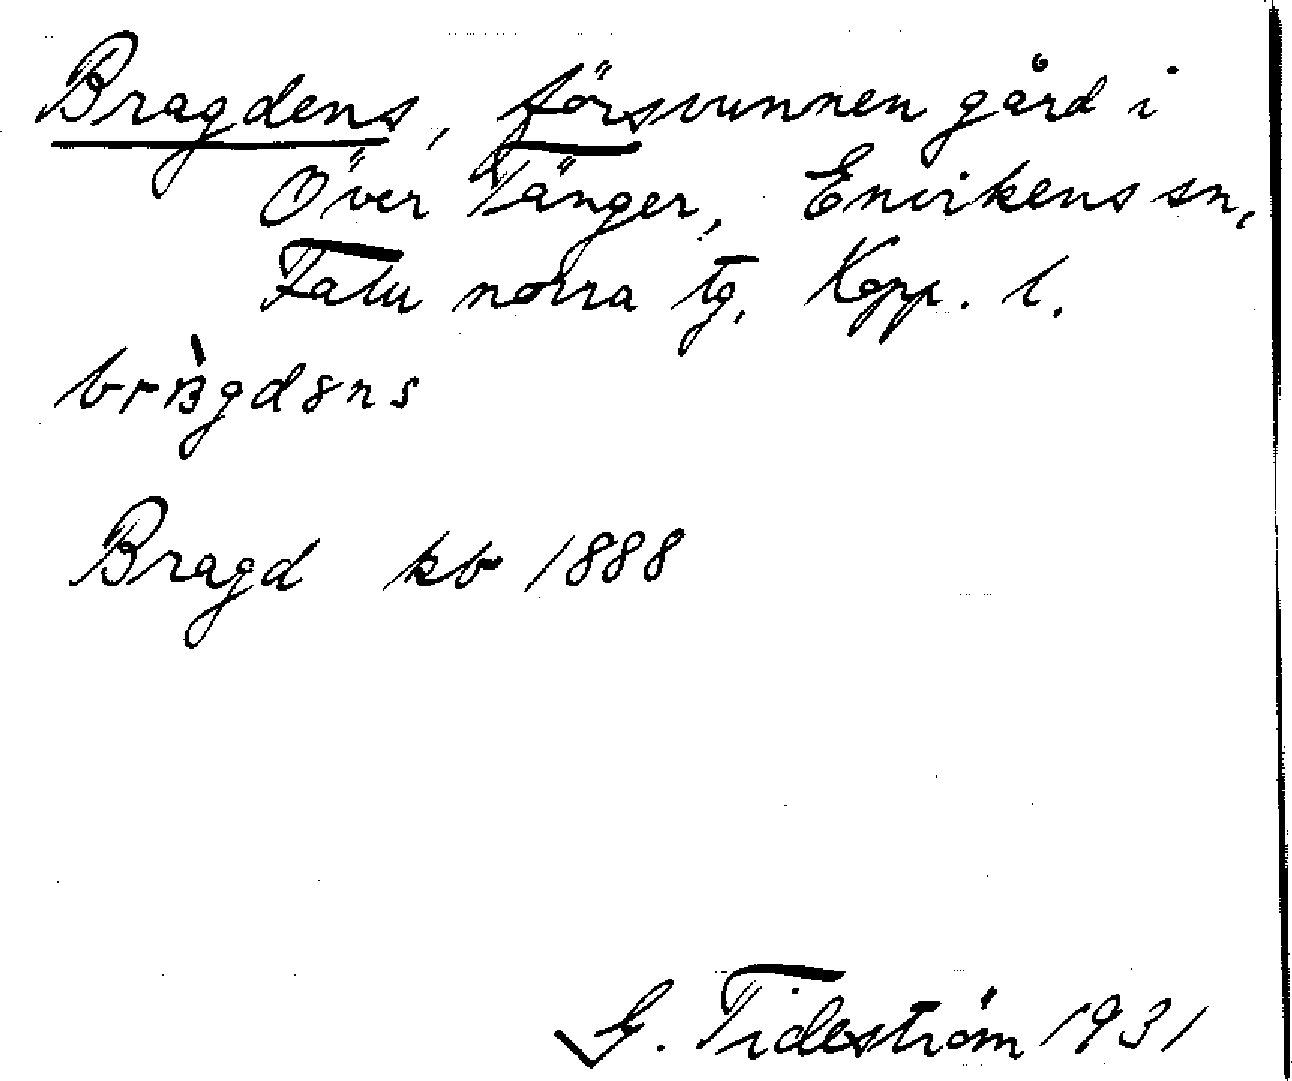 Bragdens, försvunnen gård i
Över Tänger, Envikens sn,
Falu norra tg, Kopp. l.
Bragd kb 1888
G. Tideström 1931